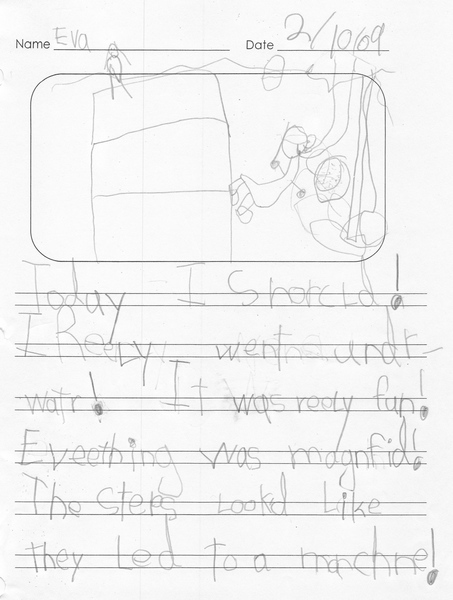 Name Eva Date 2/10/09
Today I Snorcld!
I Reely went undr-
watr! It was reely fun!
Eveething was magnfid!
The steps lookd like
they Led to a manchine!